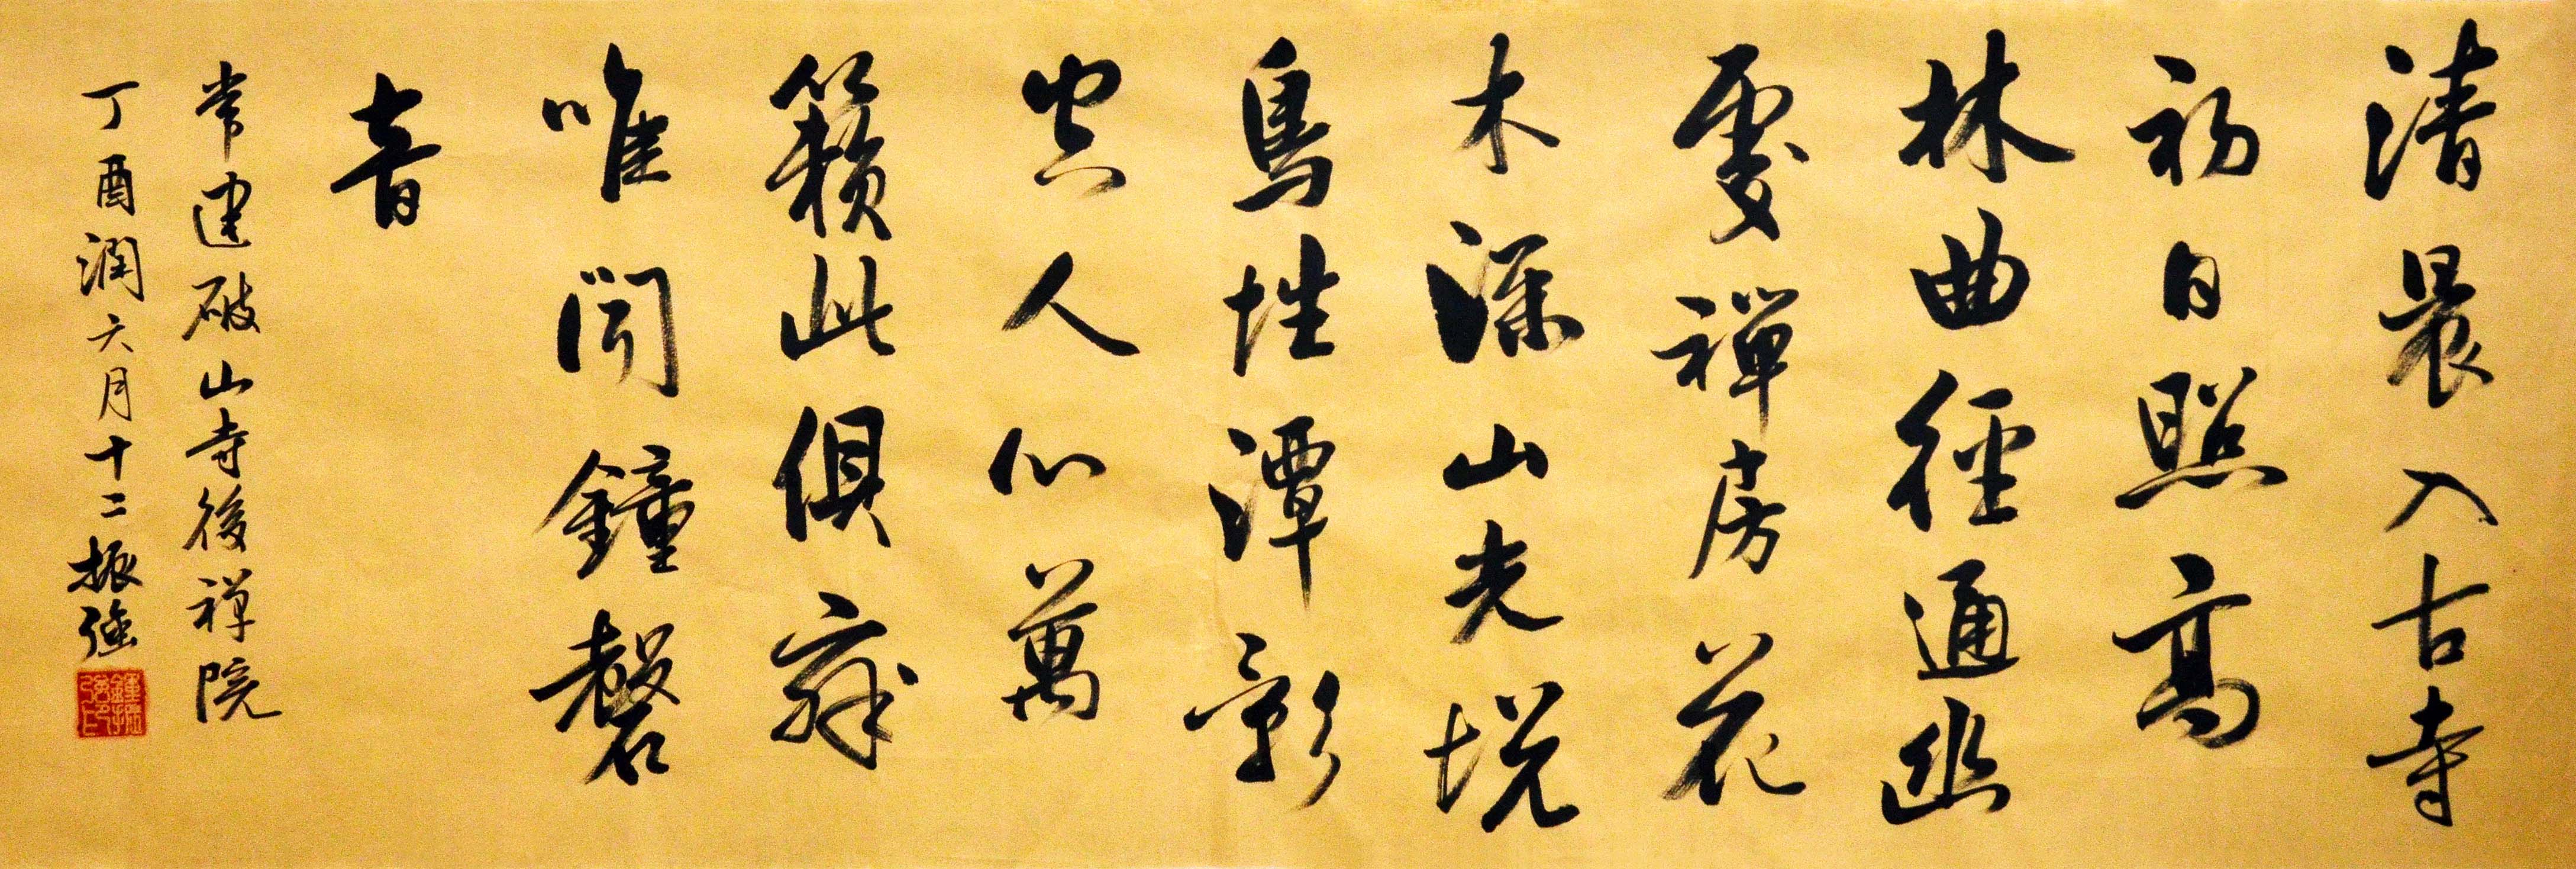 清晨入古寺
初日照高
林曲徑通幽
處禪房花
木深山光悅
鳥性潭影
空人心萬
籟此俱寂
唯聞鐘磬
音
常建破山寺後禅院
丁酉潤六月十二振強